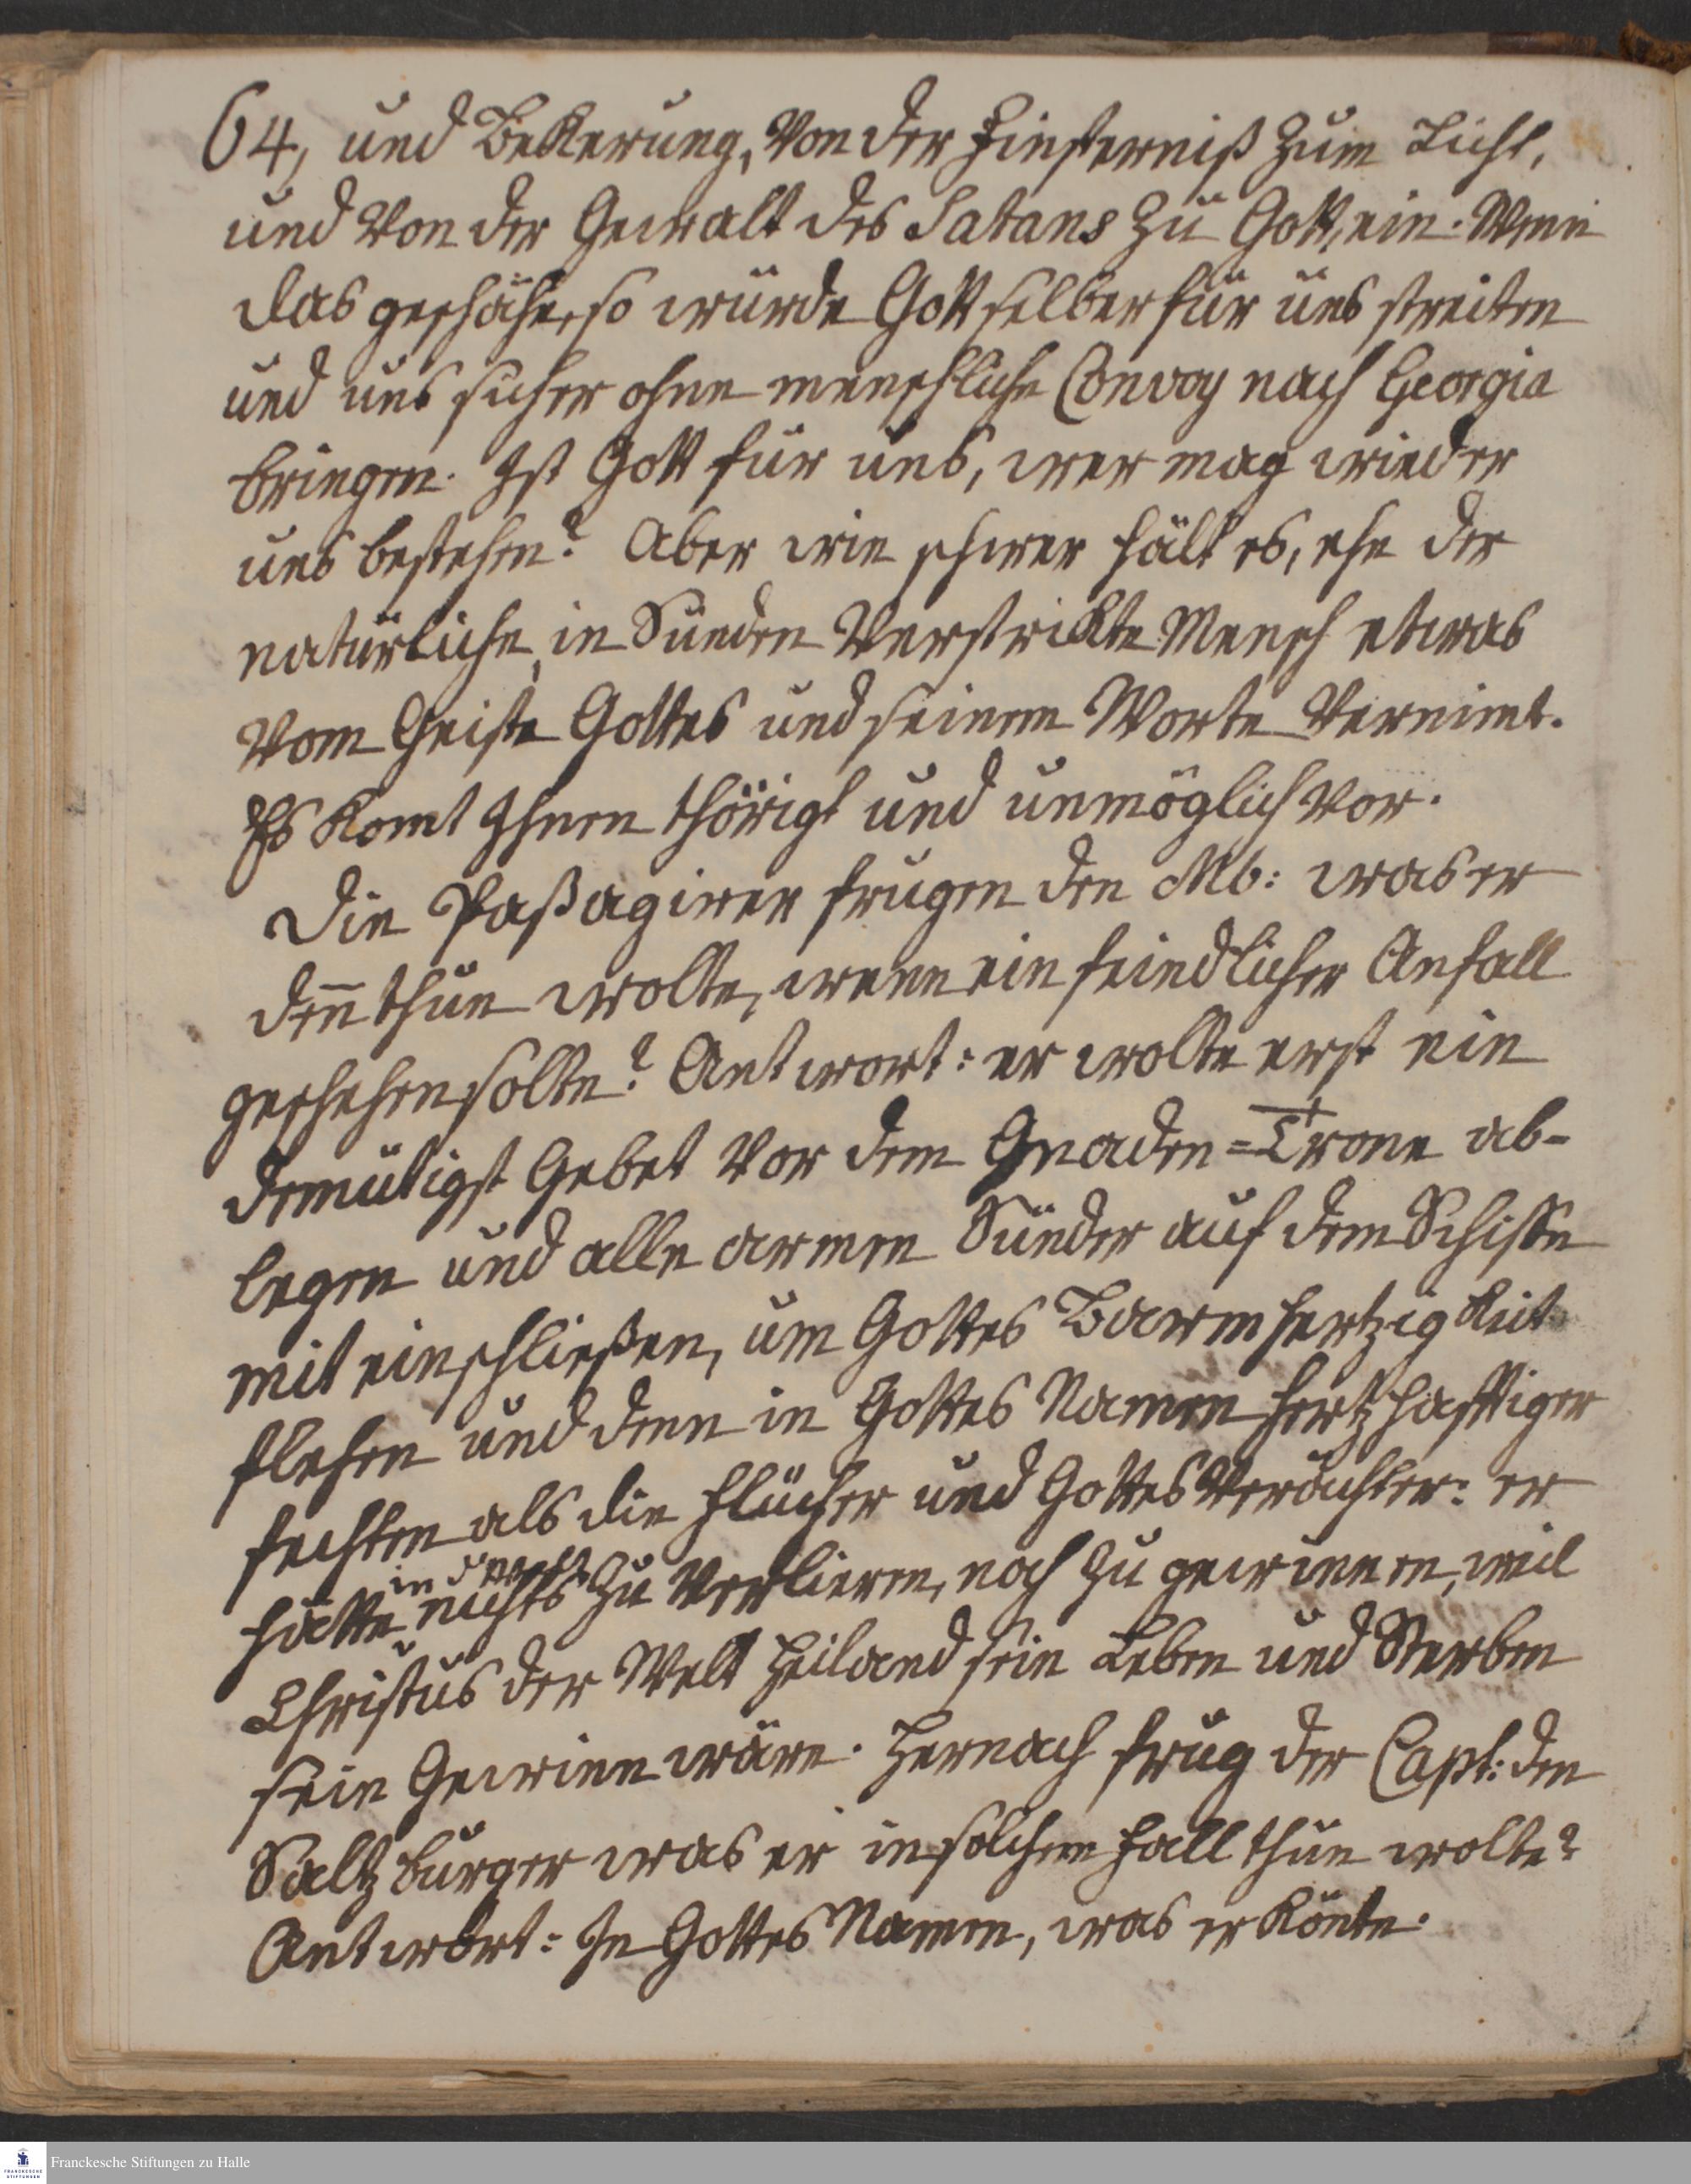 64, und Bekerung, von der Finsterniß zum Licht,
und von der Gewalt des Satans zu Gott, ein. Wenn
das geschähe, so würde Gott selber für uns streiten
und uns sicher ohne menschliche Convoy nach Georgia
bringen. Ist Gott für uns, wer mag wieder
uns bestehen? Aber wie schwer hält es, ehe der
natürliche, in Sünden verstrikte Mensch etwas
vom Geiste Gottes und seinem Worte vernimt.
Es komt Ihnen thörigt und unmöglich vor.
Die Paßagirer frugen den Mb: was er
deñ thun wolte, wenn ein feindlicher Anfall
geschehen solte? Antwort: er wolte erst ein
demütigst Gebet vor dem Gnaden=Trone ab-
legen und alle armen Sünder auf dem Schiffe
mit einschließen, um Gottes Barmhertzigkeit
flehen und denn in Gottes Namen hertzhafftiger
fechten als die Flücher und Gottes Verächter: er
in d Welt
hätte nichts zu verlieren, noch zu gewinnen, weil
Christus der Welt Heiland sein Leben und Sterben
sein Gewinn wäre. Hernach frug der Capt: den
Saltzburger was er in solchem Fall thun wolte?
Antwort: In Gottes Namen, was er könte.
Franckesche Stiftungen zu Halle
FRANCKESCHE
STIFTUNGEN